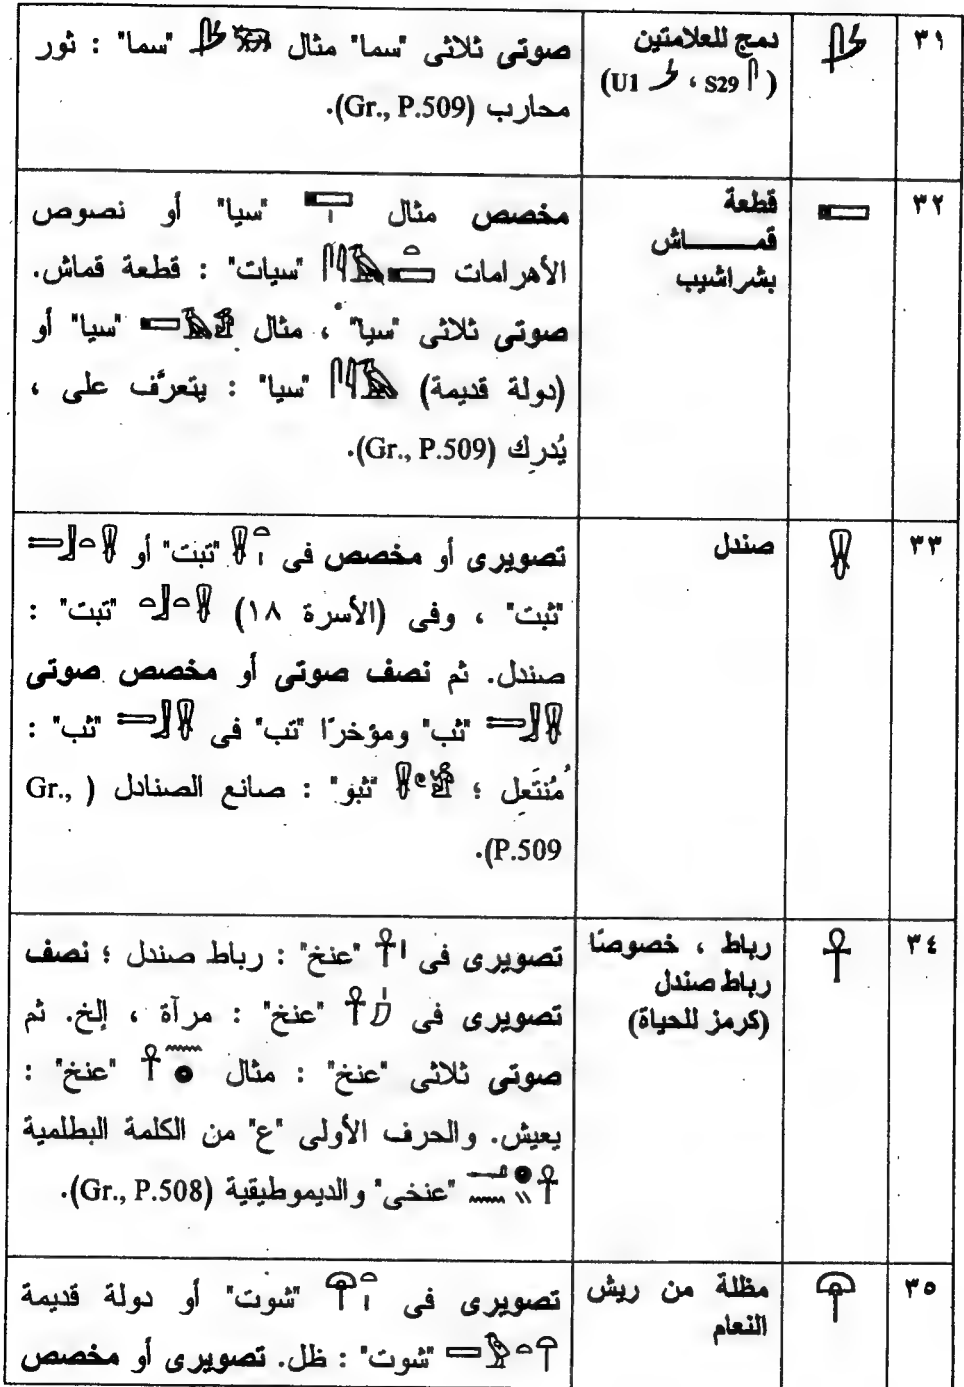 ٣١
دمج للعلامتين
(S29 ، U1)
صوتى ثلاثى "سما" مثال "سما" : ثور
محارب (Gr., P.509).
٣٢
قطعة
قمـــــاش
بشراشيب
مخصص مثال "سيا" أو نصوص
الأهرامات "سيات" : قطعة قماش.
صوتى ثلاثى "سيا" ، مثال "سيا" أو
(دولة قديمة) "سيا" : يتعرَّف على ،
يُدرِك (Gr., P.509).
٣٣
صندل
تصويرى أو مخصص فى "تبت" أو
"ثبت" ، وفى (الأسرة ١٨) "تبت" :
صندل. ثم نصف صوتى أو مخصص صوتى
"ثب" ومؤخرًا "تب" فى "ثب" :
مُنتَعِل ؛ "ثبو" : صانع الصنادل (Gr.,
P.509).
٣٤
رباط ، خصوصًا
رباط صندل
(كرمز للحياة)
تصويرى فى "عنخ" : رباط صندل ؛ نصف
تصويرى فى "عنخ" : مرآة ، إلخ. ثم
صوتى ثلاثى "عنخ" : مثال "عنخ" :
يعيش. والحرف الأولى "ع" من الكلمة البطلمية
"عنخى" والديموطيقية (Gr., P.508).
٣٥
مظلة من ريش
النعام
تصويرى فى "شوت" أو دولة قديمة
"شوت" : ظل. تصويرى أو مخصص